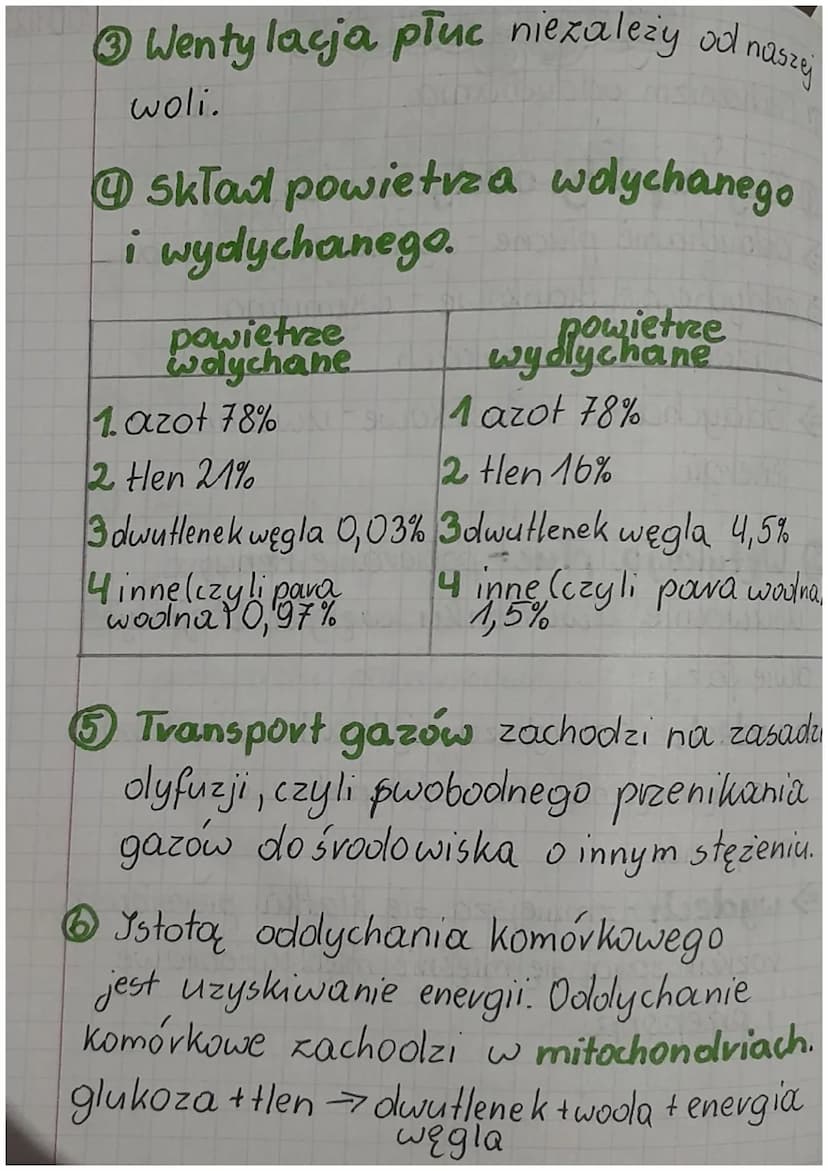 ③ Wentylacja płuc niezależy od naszej
woli.
④ Skład powietrza wdychanego
i wydychanego.
powietrze
wdychane
powietrze
wydychane
1. azot 78%
1 azot 78%
2 tlen 21%
2 tlen 16%
3 dwutlenek węgla 0,03%
3 dwutlenek węgla 4,5%
4 inne (czyli para
wodna) 0,97%
4 inne (czyli para wodna,
1,5%
⑤ Transport gazów zachodzi na zasadzi
dyfuzji, czyli swobodnego przenikania
gazów do środowiska o innym stężeniu.
⑥ Istotą oddychania komórkowego
jest uzyskiwanie energii. Oddychanie
komórkowe zachodzi w mitochondriach.
glukoza + tlen → dwutlenek + woda + energia
węgla